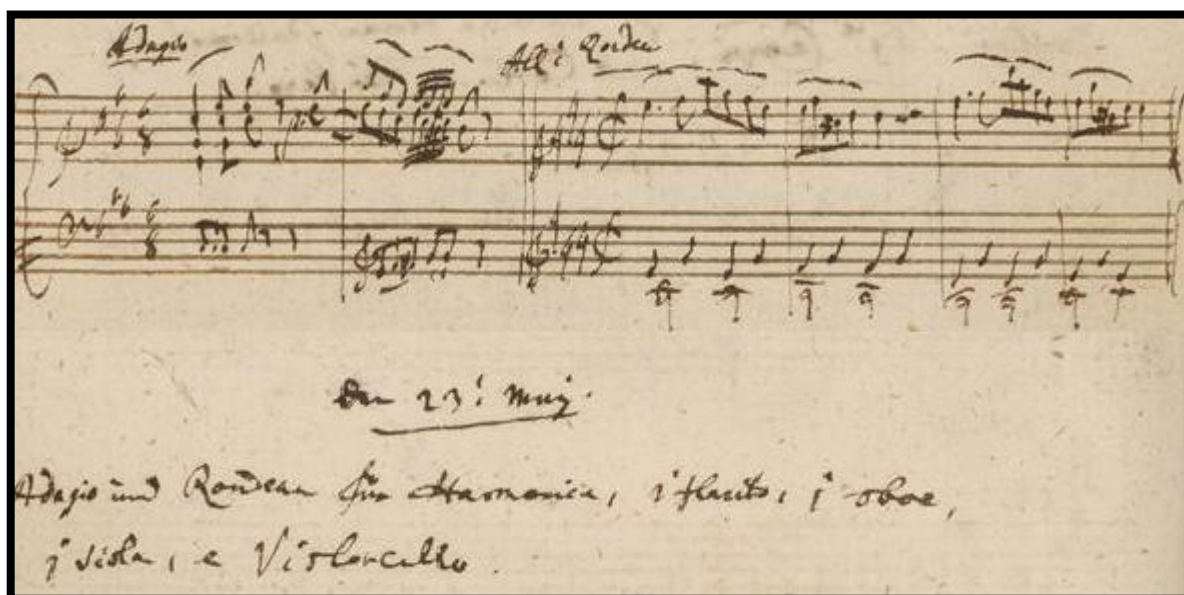 Adagio
All:º Rondeau
den 23:t May.
Adagio und Rondeau für Harmonica, 1 flauto, 1 oboe,
1 viola, e Violoncello.